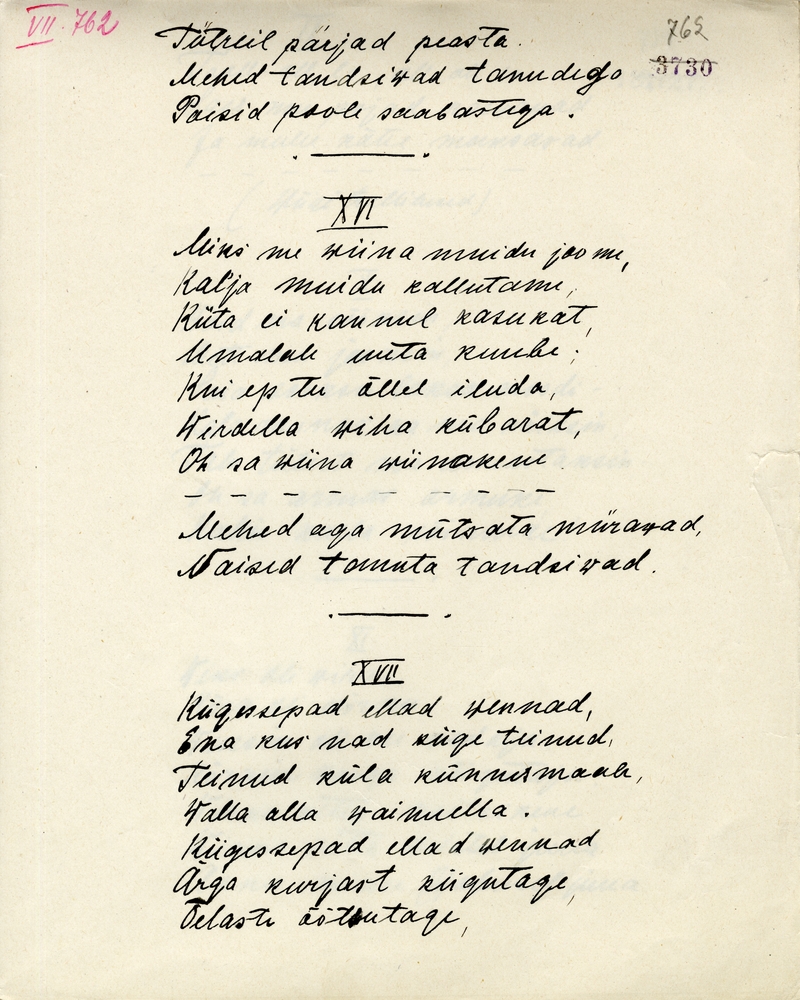 VII. 762
762
3730
Tütreil pärjad peasta.
Mehed tandsiwad tanudego
Poisid poole saabastega.
XVI
Miks me wiina muidu joome,
Kalja muidu kallutame,
Küta ei kannul kasukat,
Umalale uuta kuube;
Kui ep tee õllel iluda,
Wirdella wiha kübarat,
Oh sa wiina wiinakene.
Mehed aga mütsata mürawad,
Naised tanuta tandsiwad.
XVII
Kiigessepad ellad wennad,
Ena kus nad kiige teinud,
Teinud küla künnismaale,
Walla alla wainuella.
Kiigessepad ellad wennad
Ärga kurjast kiigutage,
Õelaste õõtsutage,